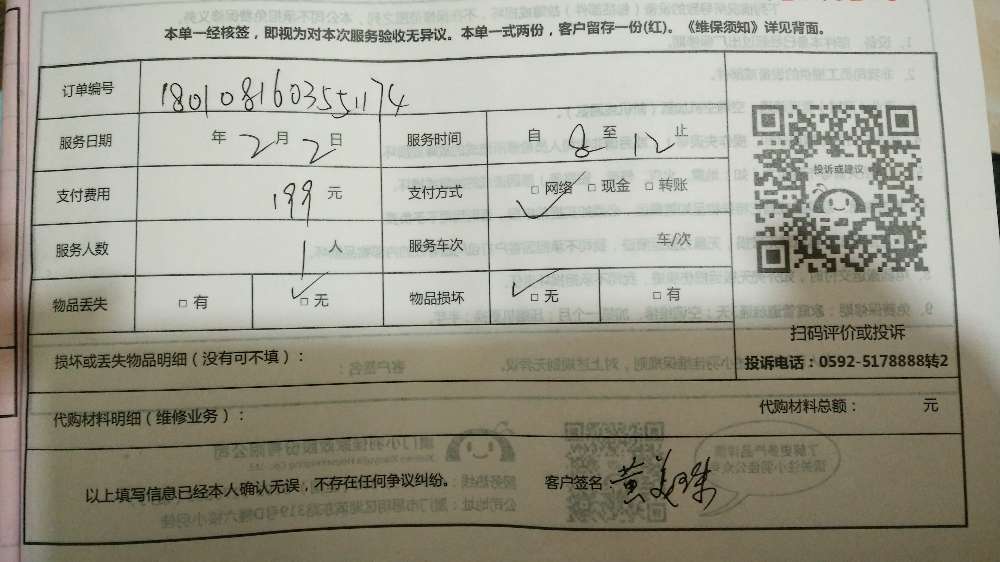 本单一经核签，即视为对本次服务验收无异议。本单一式两份，客户留存一份(红)。《维保须知》详见背面。
订单编号 1801081603551174
服务日期 年 2 月 2 日 服务时间 自 8 至 12 止
支付费用 199 元 支付方式 □ 网络 □ 现金 □ 转账
服务人数 1 人 服务车次 车/次
物品丢失 □ 有 □ 无 物品损坏 □ 无 □ 有
投诉或建议
扫码评价或投诉
损坏或丢失物品明细（没有可不填）：
投诉电话：0592-5178888转2
代购材料明细（维修业务）： 代购材料总额： 元
以上填写信息已经本人确认无误，不存在任何争议纠纷。 客户签名: 黄美珠